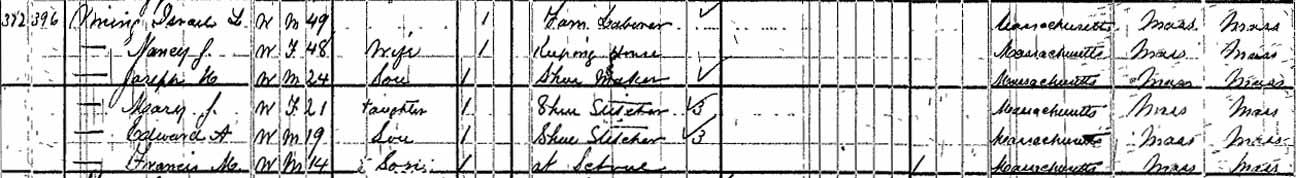 382 396 Vining, Israel L. W M 49 1 Farm Laborer Massachusetts Mass Mass
— Nancy J. W F 48 Wife 1 Keeping House Massachusetts Mass Mass
— Joseph W M 24 Son 1 Shoe Maker Massachusetts Mass Mass
— Mary J. W F 21 Daughter 1 Shoe Stitcher 3 Massachusetts Mass Mass
— Edward A W M 19 Son 1 Shoe Stitcher 3 Massachusetts Mass Mass
— Francis M. W M 14 Son 1 at School 1 Massachusetts Mass Mass